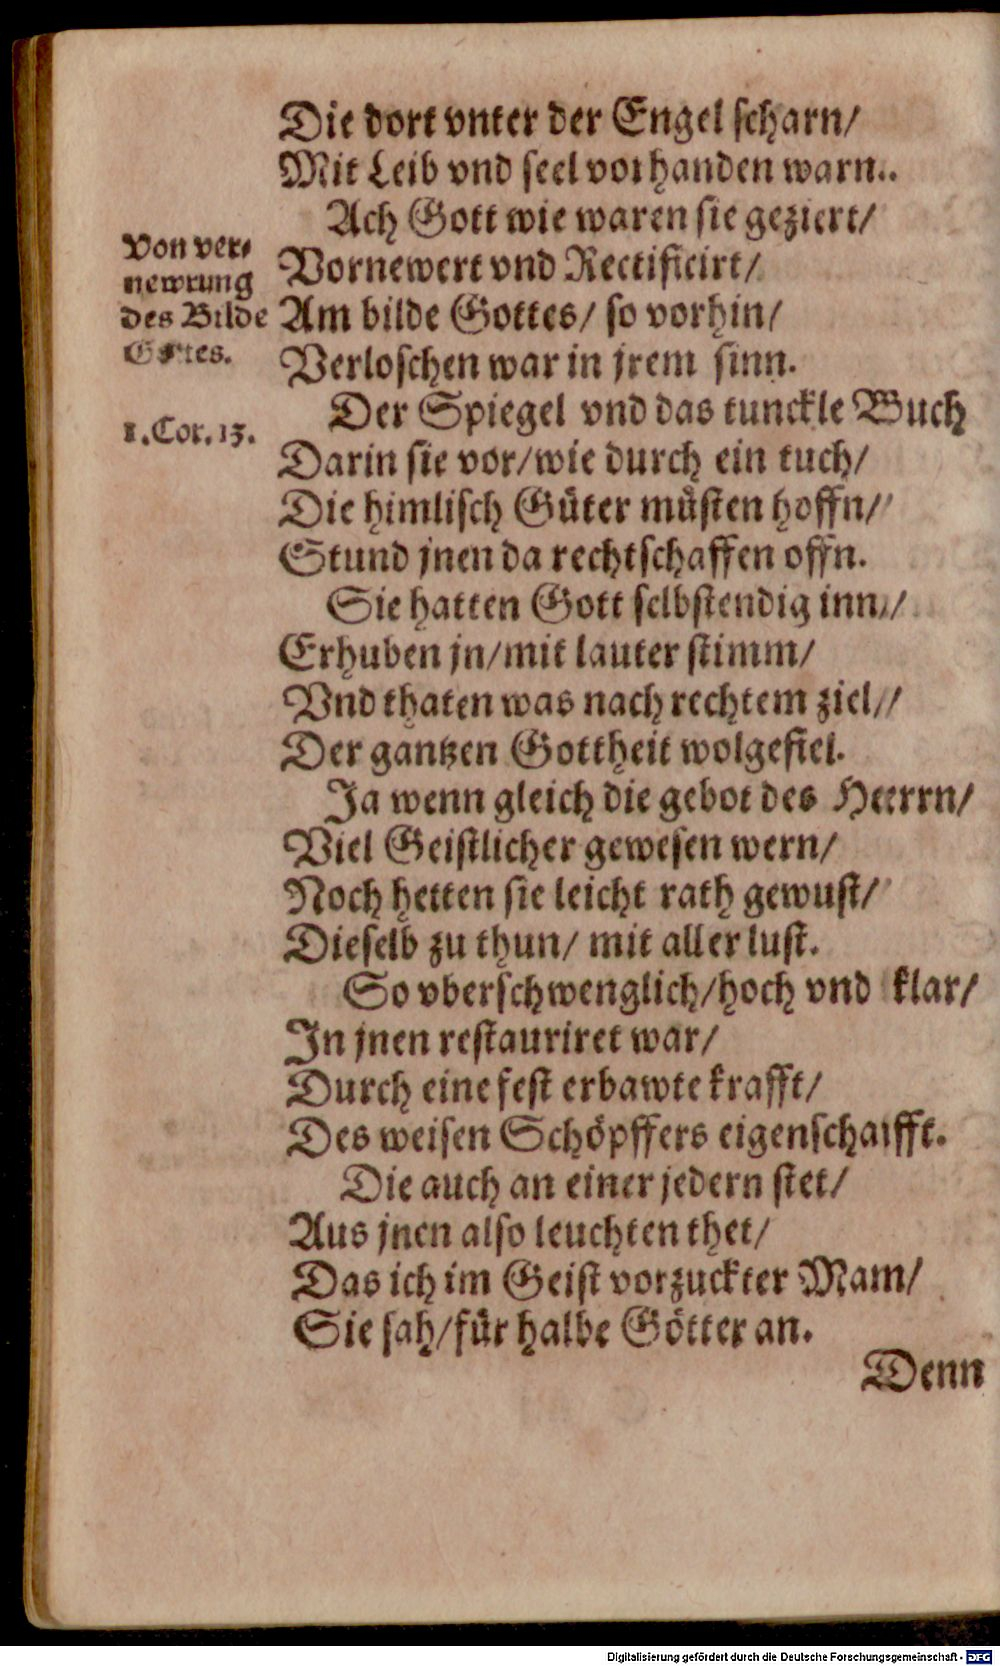 Die dort vnter der Engel scharn/
Mit Leib vnd seel vorhanden warn..
Ach Gott wie waren sie geziert/
Von ver-
newrung
des Bilde
Gottes.
Vornewert vnd Rectificirt/
Am bilde Gottes/ so vorhin/
Verloschen war in jrem sinn.
Der Spiegel vnd das tunckle Buch
1. Cor. 13.
Darin sie vor/wie durch ein tuch/
Die himlisch Güter müsten hoffn/
Stund jnen da rechtschaffen offn.
Sie hatten Gott selbstendig inn/
Erhuben jn/mit lauter stimm/
Vnd thaten was nach rechtem ziel//
Der gantzen Gottheit wolgefiel.
Ja wenn gleich die gebot des Herrn/
Viel Geistlicher gewesen wern/
Noch hetten sie leicht rath gewust/
Dieselb zu thun/ mit aller lust.
So vberschwenglich/hoch vnd klar/
In jnen restauriret war/
Durch eine fest erbawte krafft/
Des weisen Schöpffers eigenschafft.
Die auch an einer jedern stet/
Aus jnen also leuchten thet/
Das ich im Geist vorzuckter Mam/
Sie sah/für halbe Götter an.
Denn
Digitalisierung gefördert durch die Deutsche Forschungsgemeinschaft - DFG